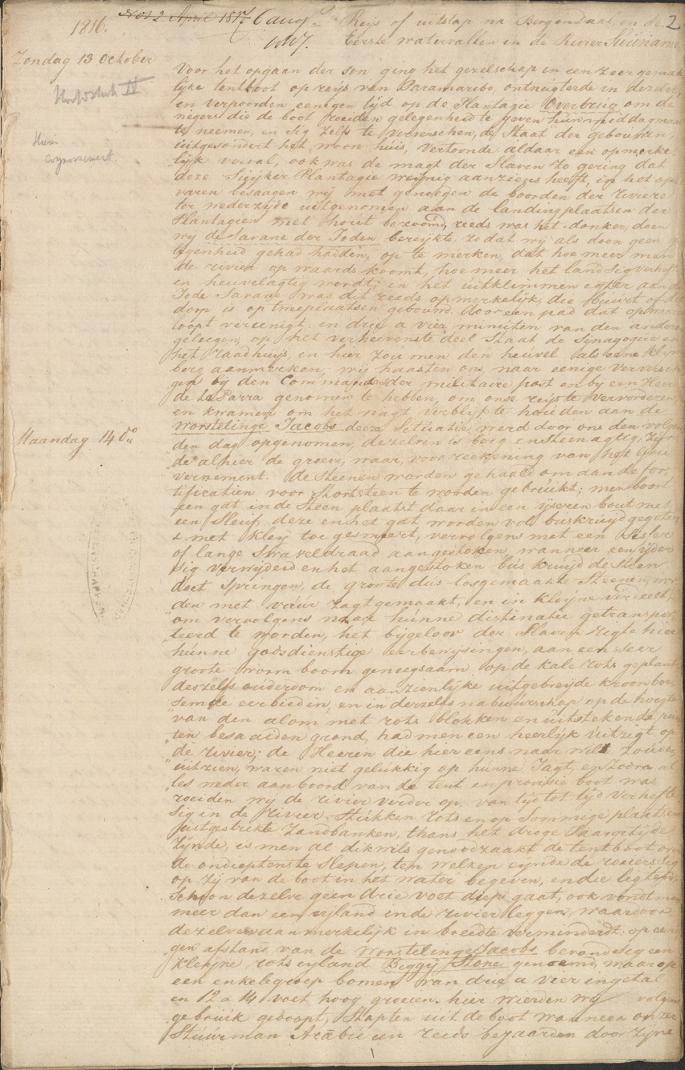 1816. 2 April 6 aug. Reys of uitstap na Bergendaal, en de 2
Eerste watervallen in de Rivier Suriname
Zondag 13 October
Voor het opgaan der son ging het geselschap in een zeer gemak
lijke tentboot op reijs van Paramaribo, ontnugterde in dezelve
en vertoonden eenigen tijd op de Plantagie Overbrug om de
negers die de boot roeiden gelegenheid te geven hun middagmaal
te neemen, en sig zelfs te ververschen, de Staat der gebouwen
uitgesondert het woon huis, vertoonde aldaar een opmerke
lijk verval, ook was de magt der Slaven zo gering dat
deze Suijker Plantagie weijnig aanzien heeft, in het op
varen besaagen wij met genoegen de boorden der riviere
ter wederzijde uitgenomen aan de landingplaatsen der
Plantagien met hout bezoomd, reeds was het donker, doen
wij de Savane der Joden bereijkte, zodat wij als doen geen g
legenheid gehad hadden, op te merken, dat hoe meer men
de rivier op waards koomt, hoe meer het land sig verheft
en heuvelagtig wordt; in het uitklimmen egter aan de
Jode Savane was dit reeds opmerkelijk, die buurt of
dorp is op twe plaatsen gebouwd, door een pad dat op
loopt vereenigt. in drie a vier minuten van den anderen
gelegen, op het verhevenste deel Staat de Synagoge en
het Raadhuys, en hier zou men den heuvel als eene kleijne
berg aanmerken; wij haasten ons, naar eenige ververschin
gen bij den Commandeur der militaire post en bij een Heer
de la Parra genomen te hebben, om onse reijse te vervorderen
en kwamen om het nagt verblijf te houden aan de
Worstelinge Jacobs deze Situatie, werd door ons den volgen
Maandag 14 do
den dag opgenomen, dezelven is berg en steenagtig, zijn
de alhier de groeve, waar, voor reekening van het Gou
vernement. de Steenen worden gehaald om aan de for
tificatien voor Stortsteen te worden gebruikt; men boort
een gat in de Steen plaatst daar in een ijseren bout met
een Sleuf, deze en het gat worden vol buskruijd gegoten
& met kleij toegesmeert, vervolgens met een
of lange Swaveldraad aangestoken, wanneer een ijder
sig verwijderd en het aangestoken buskruijd de Steen
doet Springen, de groote dus losgemaakte Steenen, wor
den met vuur zagt gemaakt, en in kleijne verdeelt,
om vervolgens naar hunne distinatie getranspor
teerd te worden, het bijgeloof der Slaven regte hier
hunne Godsdienstige eerbewijsingen, aan een zeer
groote boom genoegsaam op de kale rots geplant
deszelfs ouderdom en aanzienlijke uitgebreijde kroon
eerbieden, en in deszelfs nabuurschap op de hoogte
van den alom met rots blokken en uitstekende
ten besaaiden grond, had men een heerlijk uitzigt op
de rivier; de Heeren die hier eens naar wild zouden
uitzien, waren niet gelukkig op hunne Jagt, en zodra
les weder aan boord van de tent en provisie boot was
roeiden wij de rivier verder op. van tijd tot tijd verhefte
sig in de Rivier, Stukken rots en op sommige plaatsen
uitgestrekte Zandbanken, thans het drooge Saarsetijde
zijnde, is men al dikwils genoodzaakt de tentboot over
de ondieptens te Slepen, ten welken eijnde de roeiers sig
op zij van de boot in het water begeven, en die ligten
Schoon dezelve geen drie voet diep gaat, ook vond men
meer dan een eyland in de rivier leggen, waardoor
dezelve aanmerkelijk in breedte verminderde; op een
gen afstand van de worstelinge Jacobs bevond sig een
kleijne rots eyland Biggij Stone genoemd, waar op
een enkele groep bomen van drie a vier in getal
en 12 a 14 voet hoog groeien. hier wierden wij volgens
gebruik gedoopt, Stapten uit de boot wanneer onzer
Stuurman Arabie een reeds bejaarden door zijne